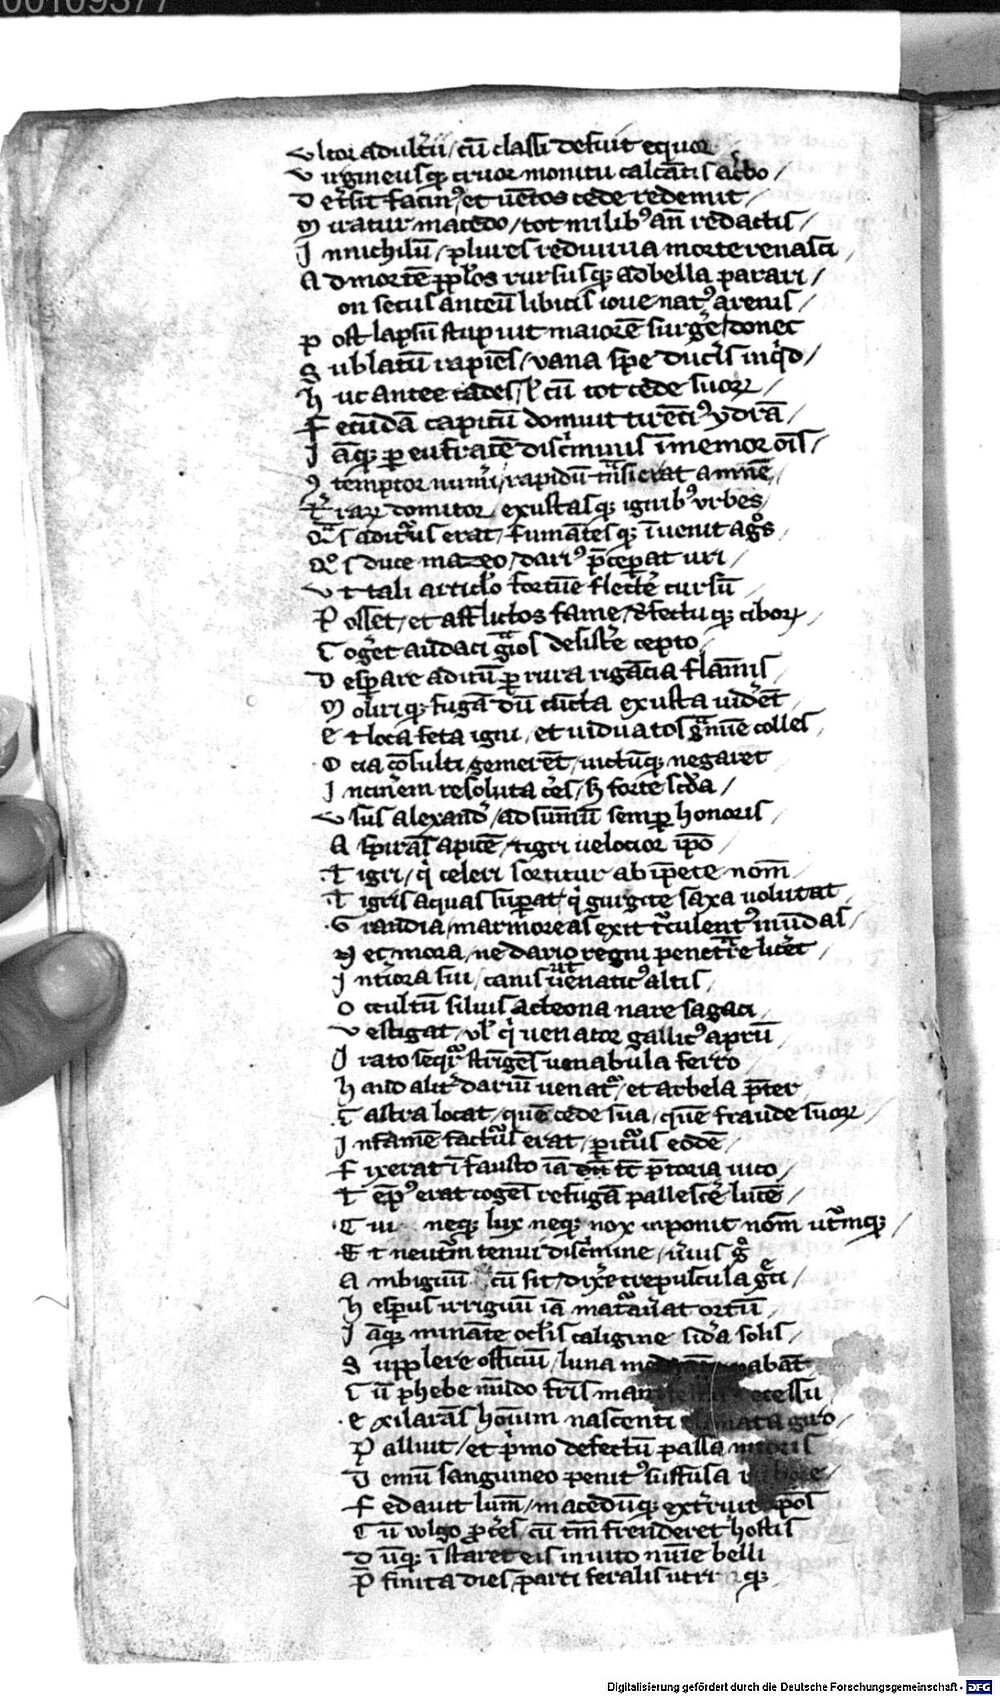 00109377
Vltor adult̾ii / cū classi defuit equor
Virgineusq; cruor monitu calcātis /
Det̾sit facin⁹ / et uētos cede redemit /
Miratur macedo / tot milib⁹ an̄ redactis /
Innichilū / plures rediuiua morte renasci /
Ad mortē rursusq; ad bella parari /
on secus anteū libicis ioue nat⁹ arenis /
Post lapsū stupuit maiorē surg̾e / donec
Sublatū rapiēs / vana spe duc̾is inq̇d /
huc antee cades / l̄ cū tot cede suoꝝ /
Fecūdā capitū domuit tirēti⁹ ydrā /
Iāq; ꝑ eufratē disc̾minis īmemor ōis /
ꝯtemptor numī / rapidū t̄nsierat amnē /
domitor / exustasq; ignib⁹ vrbes
erat / fumātesq; īuenit ag̊s
duce mazeo / dari⁹ p̄ceperat uri /
Vt tali articl̄o fortūe flect̾e cursū
Posset / et afflictos fame / defectuq; ciboꝝ /
Cog̾et audaci desist̾e cepto /
Desꝑare aditū ꝑ rura rigācia flāmis /
Moliriq; fugā dū cūcta exusta uid̾et /
Et loca feta igni / et uiduatos g̾mīe colles /
Ocia cōsulti gemerēt / uictūq; negaret
Incin̾em resoluta c̾es / forte sc̄da /
Vsus alexand̾ / ad sūmū semꝑ honoris
Aspirās apicē / tigri uelocior ip̄o
Tigri / q̇ celeri sortitur ab īpete nom̄
Tigris aquas suꝑat / q̇ gurgite saxa volutat
Grandia / marmoreas exit t̄culent⁹ in ūdas /
Nec mora / ne dario regni penet̄re lic̾et
Int̾iora sui / canis ut uenatic⁹ altis
Occultū siluis acteona nare sagaci
Vestigat / vl̾ q̇ uenator gallic⁹ aprū
Irato seq̇t̾ st̾ngēs uenabula ferro
haud alit̾ dariū uenat̾ / et arbela p̄ter
Castra locat / quē cede sua / quē fraude suoꝝ /
Infamē fact̾us erat / ꝑit̾us eodē /
Fixerat īfausto iā tc̄ p̄toria uico /
Temp⁹ erat cogēs refugā pallesc̾e lucē /
Cui neq; lux neq; nox inponit nom̄ ut̾mq; /
Et neut̾m tenui disc̾mine / 
Ambiguū cū sit / dix̾e crepuscula g̾ci /
hesperus irriguū iā mat̾au̾at ortū
Iāq; minante oc̄lis caligine sid̾a solis /
Supplere officiū / luna abāt
Cū phebe mūdo t̾ris ecessu
Exilarās hoīum nascenti giro /
Palluit / et p̄mo defectū passa
Demū sanguineo penit⁹ suffusa
Fedauit lum̄ / macedūq; ext̾ruit ip̄os
Cū wlgo ꝓc̾es / cū tm̄ frenderet hostis
Dūq; īstaret eis in uito nūīe belli
P̄finita dies / parti feralis utriq;
Digitalisierung gefördert durch die Deutsche Forschungsgemeinschaft - DFG